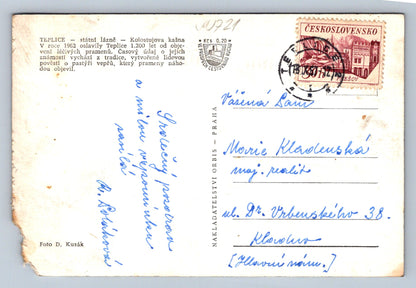 TEPLICE – státní lázně – Kolostujova kašna
V roce 1962 oslavily Teplice 1.200 let od obje-
vení léčivých pramenů. Časový údaj o jejich
známosti vychází z tradice, vytvořené lidovou
pověstí o pastýři vepřů, který prameny náho-
dou objevil.
Kčs 0,20
ČESKOSLOVENSKO
Srdečný pozdrav
a milou vzpomínku
zasílá
Foto D. Kusák
NAKLADATELSTVÍ ORBIS – PRAHA
Vážená Paní
Marie Kladenská
maj. realit
ul. Dr. Vrbenského 38.
Kladno
[Hlavní nám.]